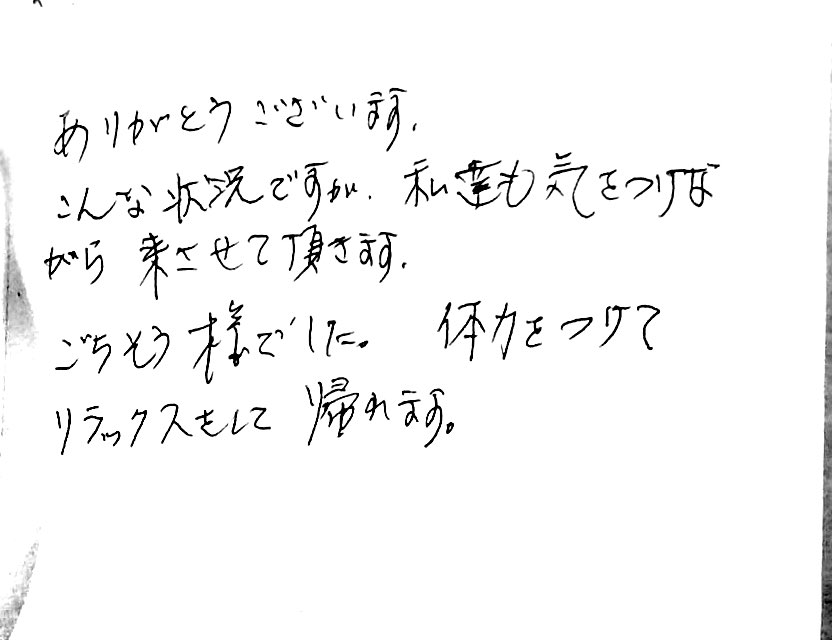 ありがとうございます.
こんな状況ですが、私達も気をつけな
がら来させて頂きます.
ごちそう様でした。 体力をつけて
リラックスをして帰れます。